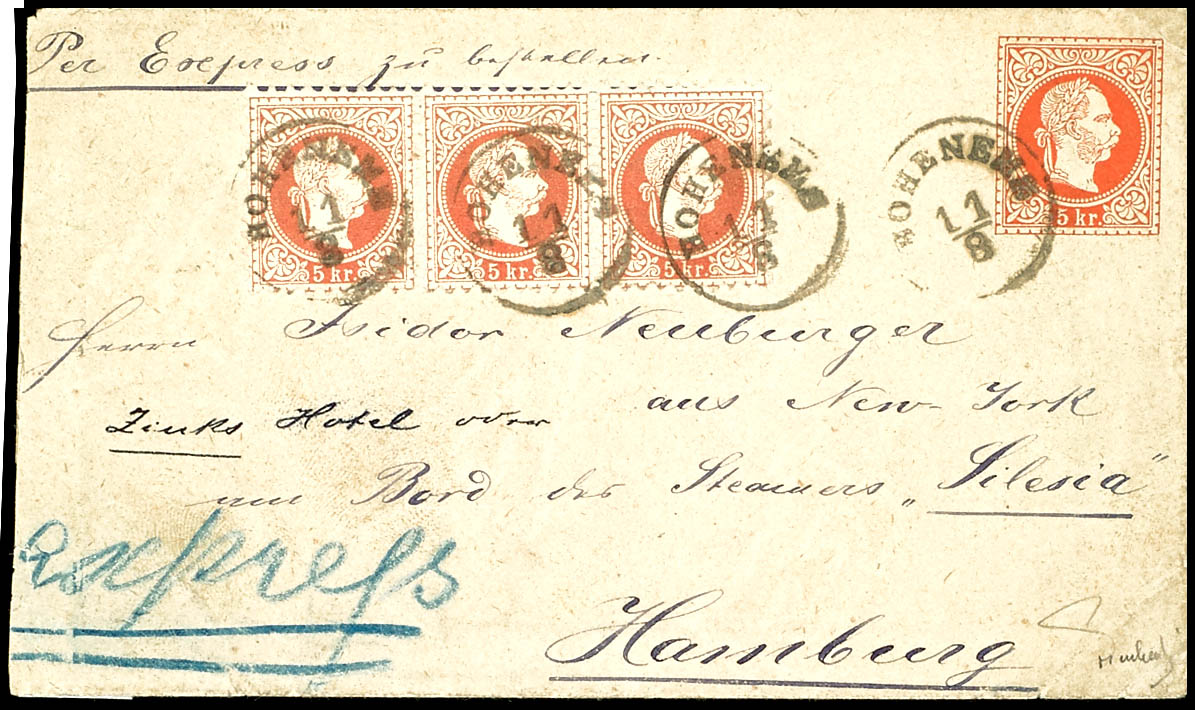 Per Express zu bestellen.
HOHENEMS 11/8
HOHENEMS 11/8
HOHENEMS 11/8
HOHENEMS 11/8
5 kr.
5 kr.
5 kr.
5 kr.
Herrn Isidor Neuburger
aus New-York
Zinks Hotel oder
am Bord des Steamers „Silesia“
Express
Hamburg